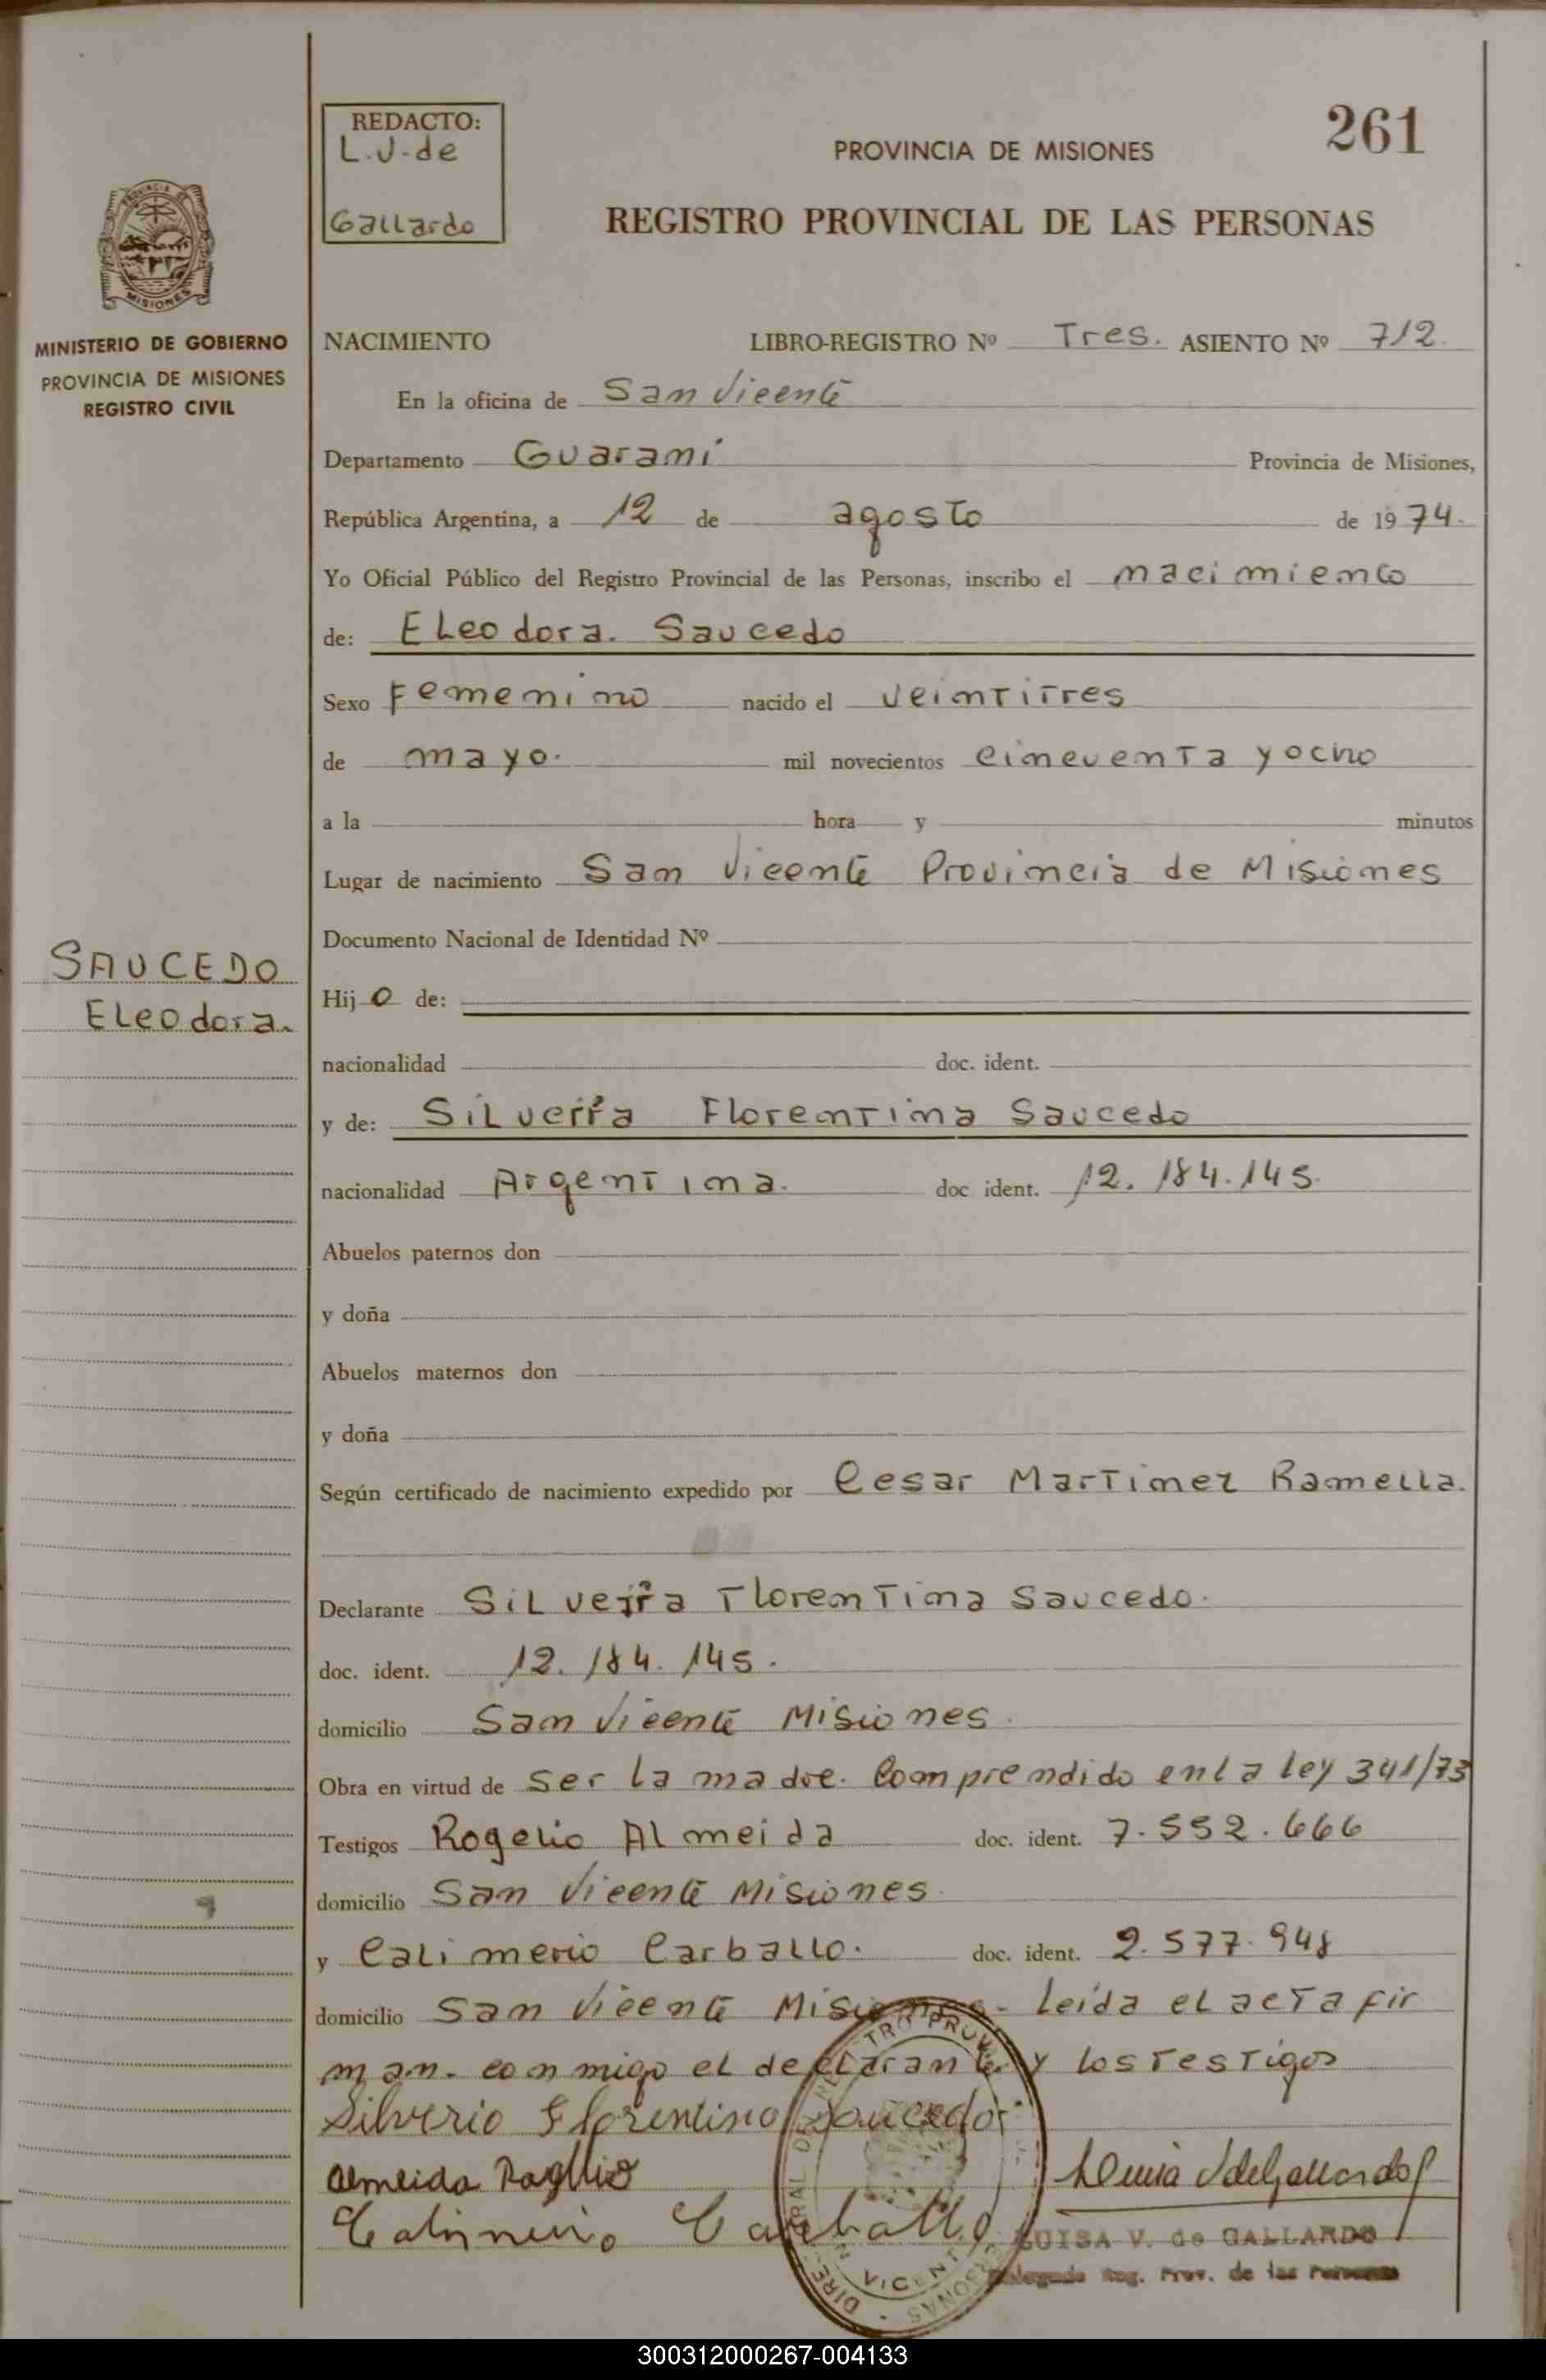 261
REDACTO:
L.V. de
Gallardo
PROVINCIA DE MISIONES
REGISTRO PROVINCIAL DE LAS PERSONAS
MISIONES
MINISTERIO DE GOBIERNO
PROVINCIA DE MISIONES
REGISTRO CIVIL
NACIMIENTO LIBRO-REGISTRO Nº Tres. ASIENTO Nº 712
En la oficina de San Vicente
Departamento Guaraní Provincia de Misiones,
República Argentina, a 12 de agosto de 1974.
Yo Oficial Público del Registro Provincial de las Personas, inscribo el nacimiento
de: Eleodora. Saucedo
Sexo Femenino nacido el Veintitres
de mayo. mil novecientos cincuenta y ocho
a la hora y minutos
Lugar de nacimiento San Vicente Provincia de Misiones
Documento Nacional de Identidad Nº
SAUCEDO
Eleodora.
Hijo de:
nacionalidad doc. ident.
y de: Silveria Florentina Saucedo
nacionalidad Argentina. doc ident. 12.184.145.
Abuelos paternos don
y doña
Abuelos maternos don
y doña
Según certificado de nacimiento expedido por Cesar Martinez Ramella.
Declarante Silveria Florentina Saucedo.
doc. ident. 12.184.145.
domicilio San Vicente Misiones.
Obra en virtud de ser la madre. Comprendido en la ley 341/73
Testigos Rogelio Almeida doc. ident. 7.552.666
domicilio San Vicente Misiones.
y Calimerio Carballo. doc. ident. 2.577.948
domicilio San Vicente Misiones- Leída el acta fir
man. conmigo el declarante y los testigos
Silverio Florentino Saucedo
Almeida
Carballo
LUISA V. de GALLARDO
Delegada Reg. Prov. de las Personas
300312000267-004133